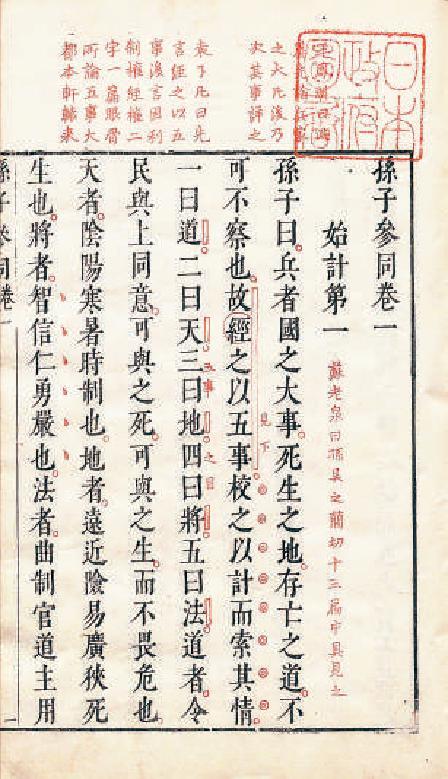 日本
政府
圖書
之大凡後乃
次其事評之
袁了凡曰先
言經之以五
事後言因利
制權經權二
字一篇眼
所論五事大
都本軒轅來
孫子參同卷一
始計第一
蘇老泉曰孫吳之簡切十三篇中具見之
孫子曰。兵者國之大事。死生之地。存亡之道。不
可不察也。故經之以五事。校之以計而索其情。
見下
一曰道。二曰天。三曰地。四曰將。五曰法。道者。令
五事之目
民與上同意。可與之死。可與之生。而不畏危也。
天者。陰陽寒暑時制也。地者。遠近險易廣狹死
生也。將者。智信仁勇嚴也。法者。曲制官道主用
孫子參同卷一
一